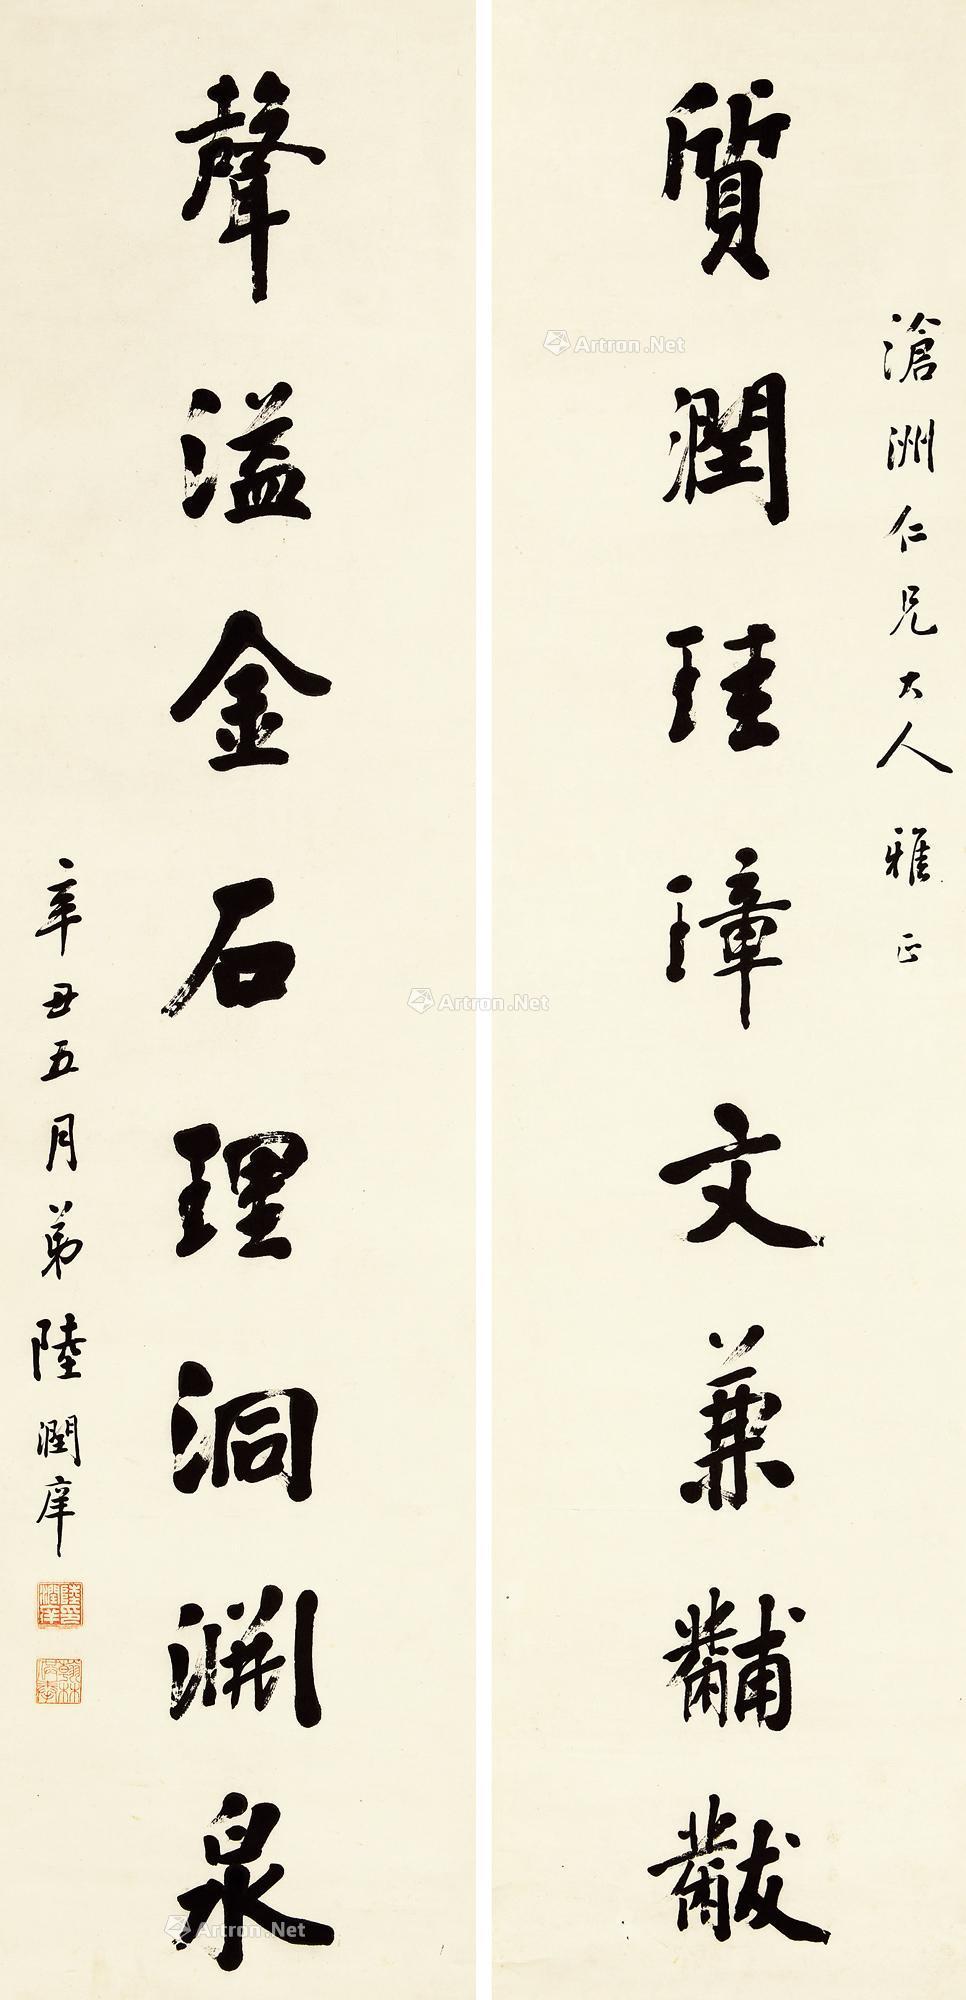 滄洲仁兄大人雅正
質潤珪璋文兼黼黻
聲溢金石理洞淵泉
辛丑五月弟陸潤庠
陸潤庠印
Artron.Net
Artron.Net
Artron.Net